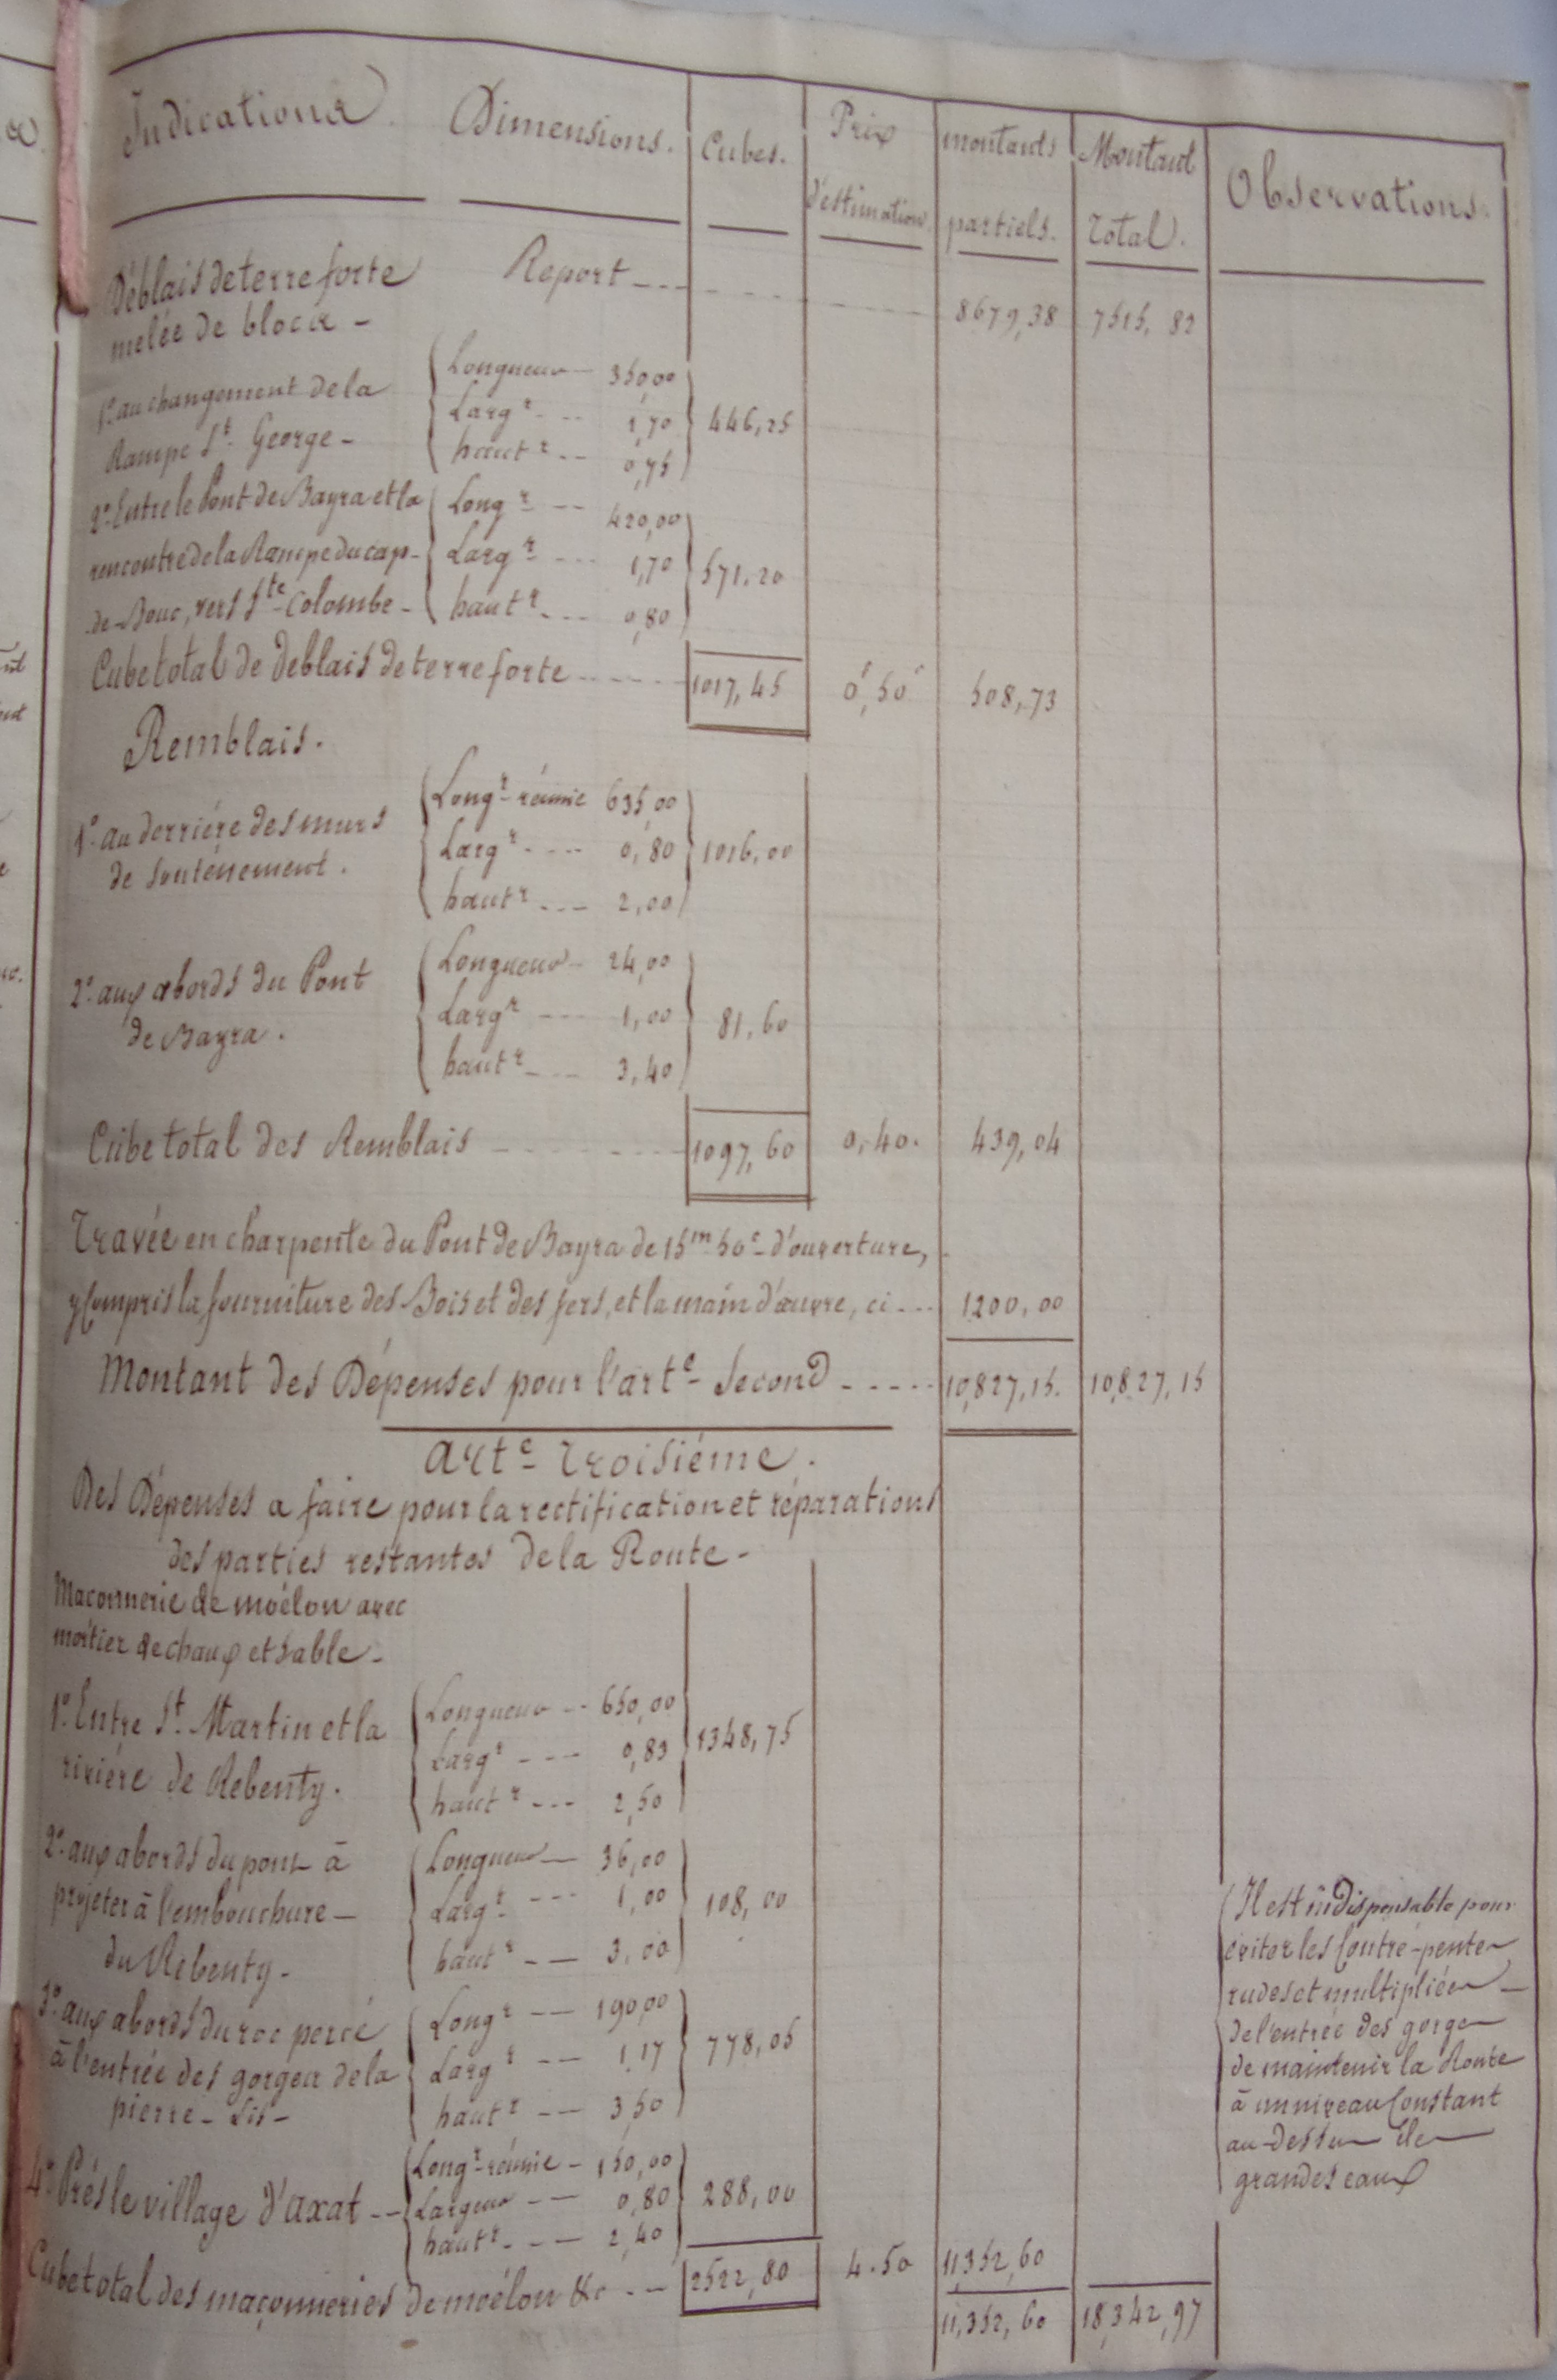 Indications. Dimensions. Cubes. Prix d'estimation. montants partiels. Montant Total. Observations.
Déblais de terre forte Report --- 8679,38 7515,82
melée de blocs -
1º. au changement de la Longueur - 350,00
Rampe St. George - Largr. --- 1,70 446,25
hautr. -- 0,75
2º. Entre le Pont de Bayra et la Longr. -- 420,00
rencontre de la Rampe du cap- Largr. --- 1,70 571.20
-de-Bouc, vers Ste. Colombe - hautr. --- 0,80
Cube total de deblais de terre forte ----- 1017,45 0f,50c 508,73
Remblais.
1º. au derriére des murs Longr. réunie 635,00
de soutènement. Largr. ---- 0,80 1016,00
hautr. --- 2,00
2º. aux abords du Pont Longueur - 24,00
de Bayra. Largr. --- 1,00 81,60
hautr. --- 3,40
Cube total des Remblais ------- 1097,60 0,40. 439,04
Travée en charpente du Pont de Bayra de 15m 50c d'ouverture,
y Compris la fourniture des Bois et des fers, et la main d'œuvre, ci --- 1200,00
Montant des Dépenses pour l'arte. Second ----- 10,827,15. 10,827,15
Arte. Troisiéme.
Des Dépenses a faire pour la rectification et réparations
des parties restantes de la Route -
Maconnerie de moélon avec
mortier de chaux et sable -
1º. Entre St. Martin et la Longueur -- 650,00
riviére de Rebenty. Largr. ---- 0,83 1348,75
hautr. --- 2,50
2º. aux abords du pont à Longueur -- 36,00
projeter à l'embouchure - Largr. --- 1,00 108,00
du Rebenty - hautr. -- 3,00
3º. aux abords du roc percé Longr. -- 190,00
à l'entrée des gorges de la Largr. -- 1,17 778,05
pierre - Lis - hautr. -- 3,50
4º. Prés le village d'axat -- Longr. réunie - 150,00
Largeur -- 0,80 288,00
hautr. --- 2,40
Cube total des maçonneries de moélon &c -- 2522,80 4.50 11,352,60
11,352,60 18,342,97
Il est indispensable pour
éviter les Contre-pentes
rudes et multipliées -
de l'entrée des gorges
de maintenir la Route
à un niveau Constant
au-dessus des
grandes eaux